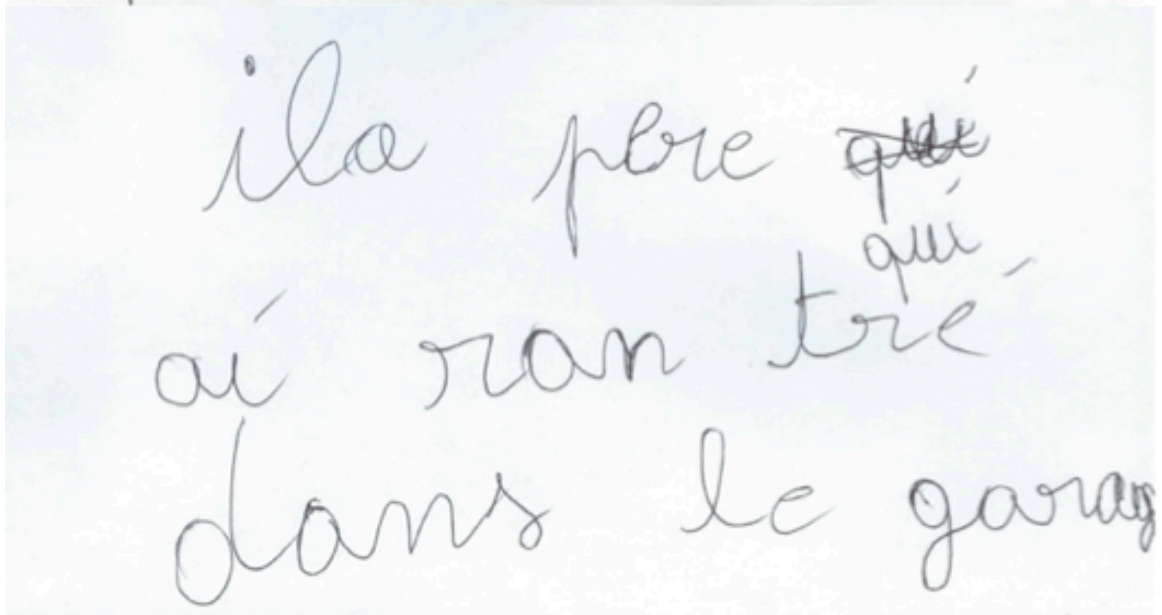 ila pere qui
qui
ai ran tré
dans le garag